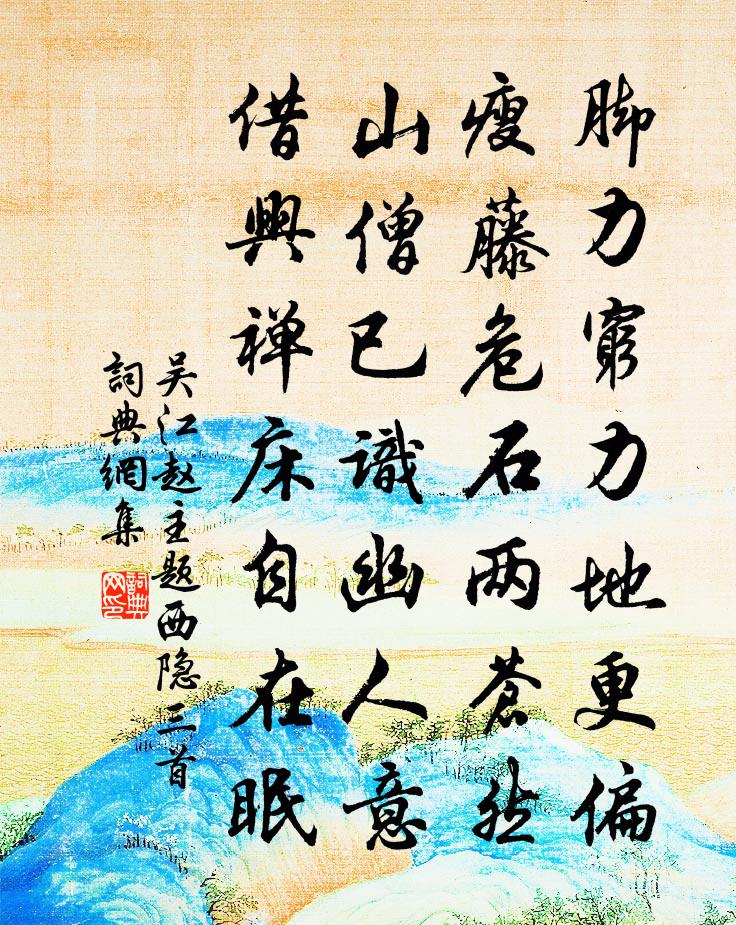 脚力窮力地更偏
瘦藤危石两蒼然
山僧已識幽人意
借興禅床自在眠
吴江赵主题西隐三首
詞典網集
詞典网印